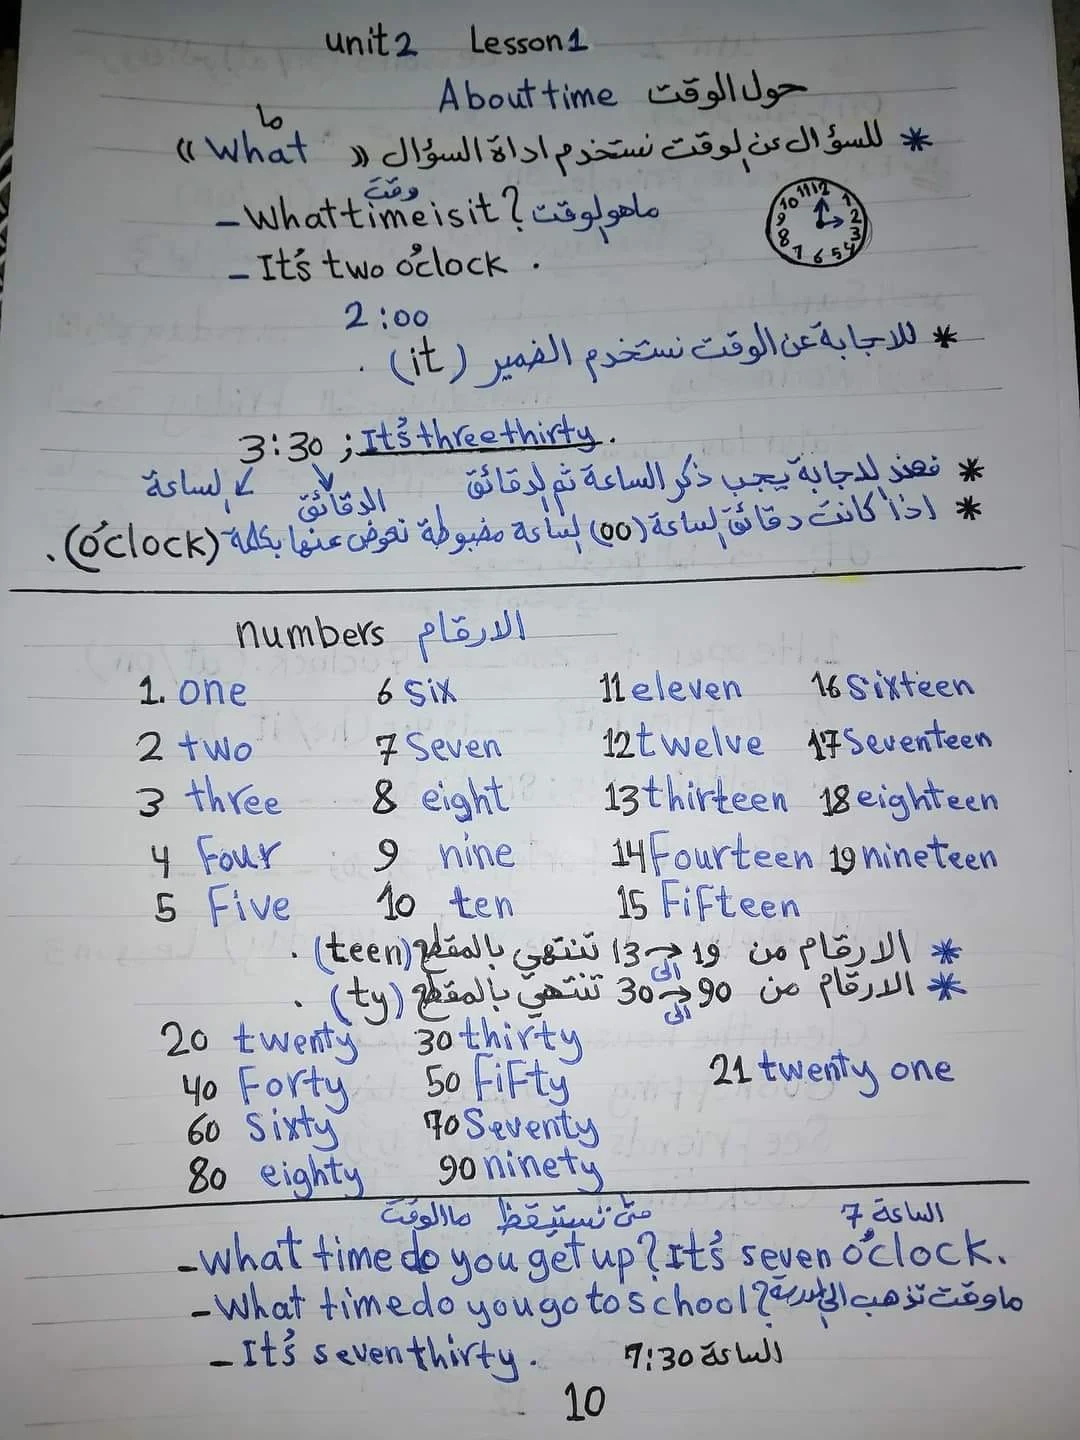 unit 2 Lesson 1
About time حول الوقت
ما
* للسؤال عن الوقت نستخدم اداة السؤال « What »
وقت
- What time is it? ماهو الوقت
- It's two o'clock .
12 1 2 3 4 5 6 7 8 9 10 11
2:00
* للاجابة عن الوقت نستخدم الضمير (it) .
3:30 ; It's three thirty.
* فعند الاجابة يجب ذكر الساعة ثم الدقائق
الساعة الدقائق
* اذا كانت دقائق الساعة (00) الساعة مضبوطة نعوض عنها بكلمة (o'clock) .
numbers الارقام
1. one 6 six 11 eleven 16 sixteen
2 two 7 seven 12 twelve 17 seventeen
3 three 8 eight 13 thirteen 18 eighteen
4 four 9 nine 14 fourteen 19 nineteen
5 five 10 ten 15 fifteen
* الارقام من 19 → 13 تنتهي بالمقطع (teen) .
الى
* الارقام من 90 → 30 تنتهي بالمقطع (ty) .
الى
20 twenty 30 thirty
40 forty 50 fifty 21 twenty one
60 sixty 70 seventy
80 eighty 90 ninety
ما الوقت متى تستيقظ الساعة 7
- what time do you get up? It's seven o'clock.
- What time do you go to school? ما وقت تذهب الى المدرسة
- It's seven thirty. الساعة 7:30
10